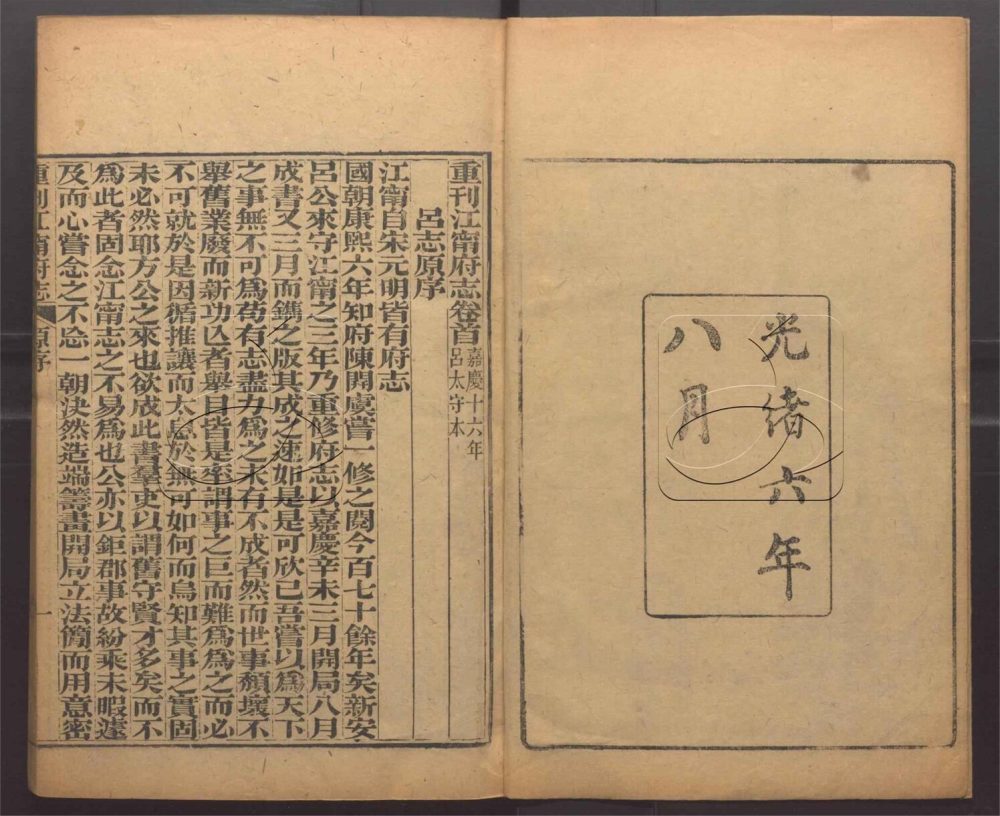 光緒六年
八月
重刊江甯府志卷首嘉慶十六年
呂太守本
呂志原序
江甯自宋元明皆有府志
國朝康熙六年知府陳開虞嘗一修之閱今百七十餘年矣新安
呂公來守江甯之三年乃重修府志以嘉慶辛未三月開局八月
成書又三月而鐫之版其成之速如是是可欣已吾嘗以爲天下
之事無不可爲苟有志盡力爲之未有不成者然而世事頽壞不
舉舊業廢而新功亾者舉目皆是率謂事之巨而難爲爲之而必
不可就於是因循推讓而太息於無可如何而烏知其事之實固
未必然耶方公之來也欲成此書羣吏以謂舊守賢才多矣而不
爲此者固念江甯志之不易爲也公亦以鉅郡事故紛乘未暇遽
及而心嘗念之不忘一朝決然造端籌畫開局立法簡而用意密
重刊江甯府志 原序 一